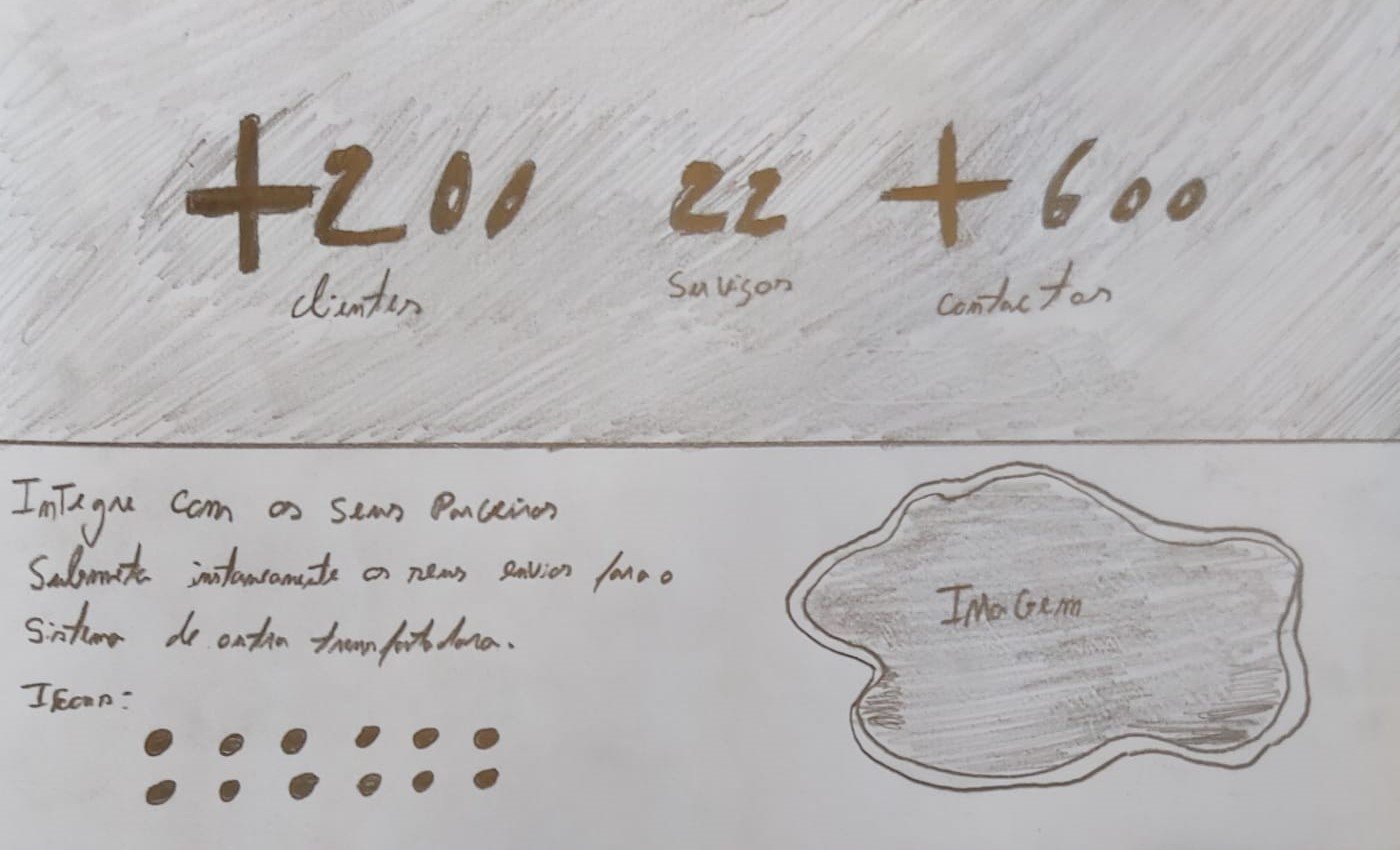 +200 22 +600
clientes Serviços contactos
Integre com os seus Parceiros
Submeta instaneamente os seus envios para o
Sistema de outra transportadora.
Icons:
IMaGem